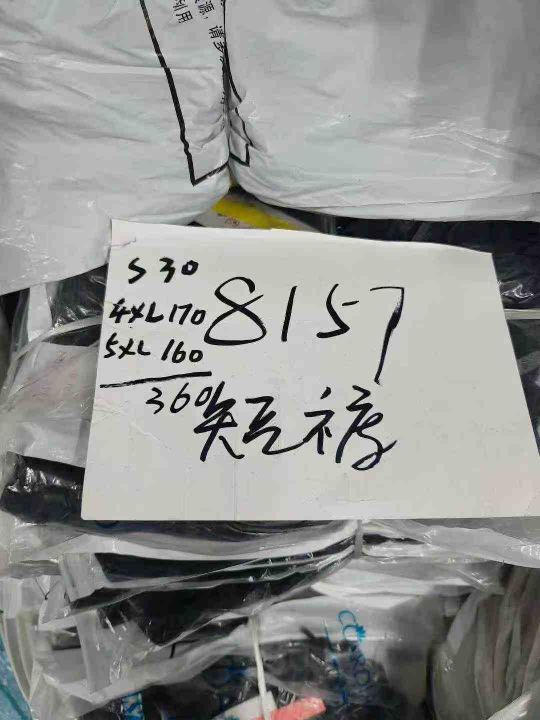 源,请多
利用
S 30
4XL 170
5XL 160
360
8157
短裤